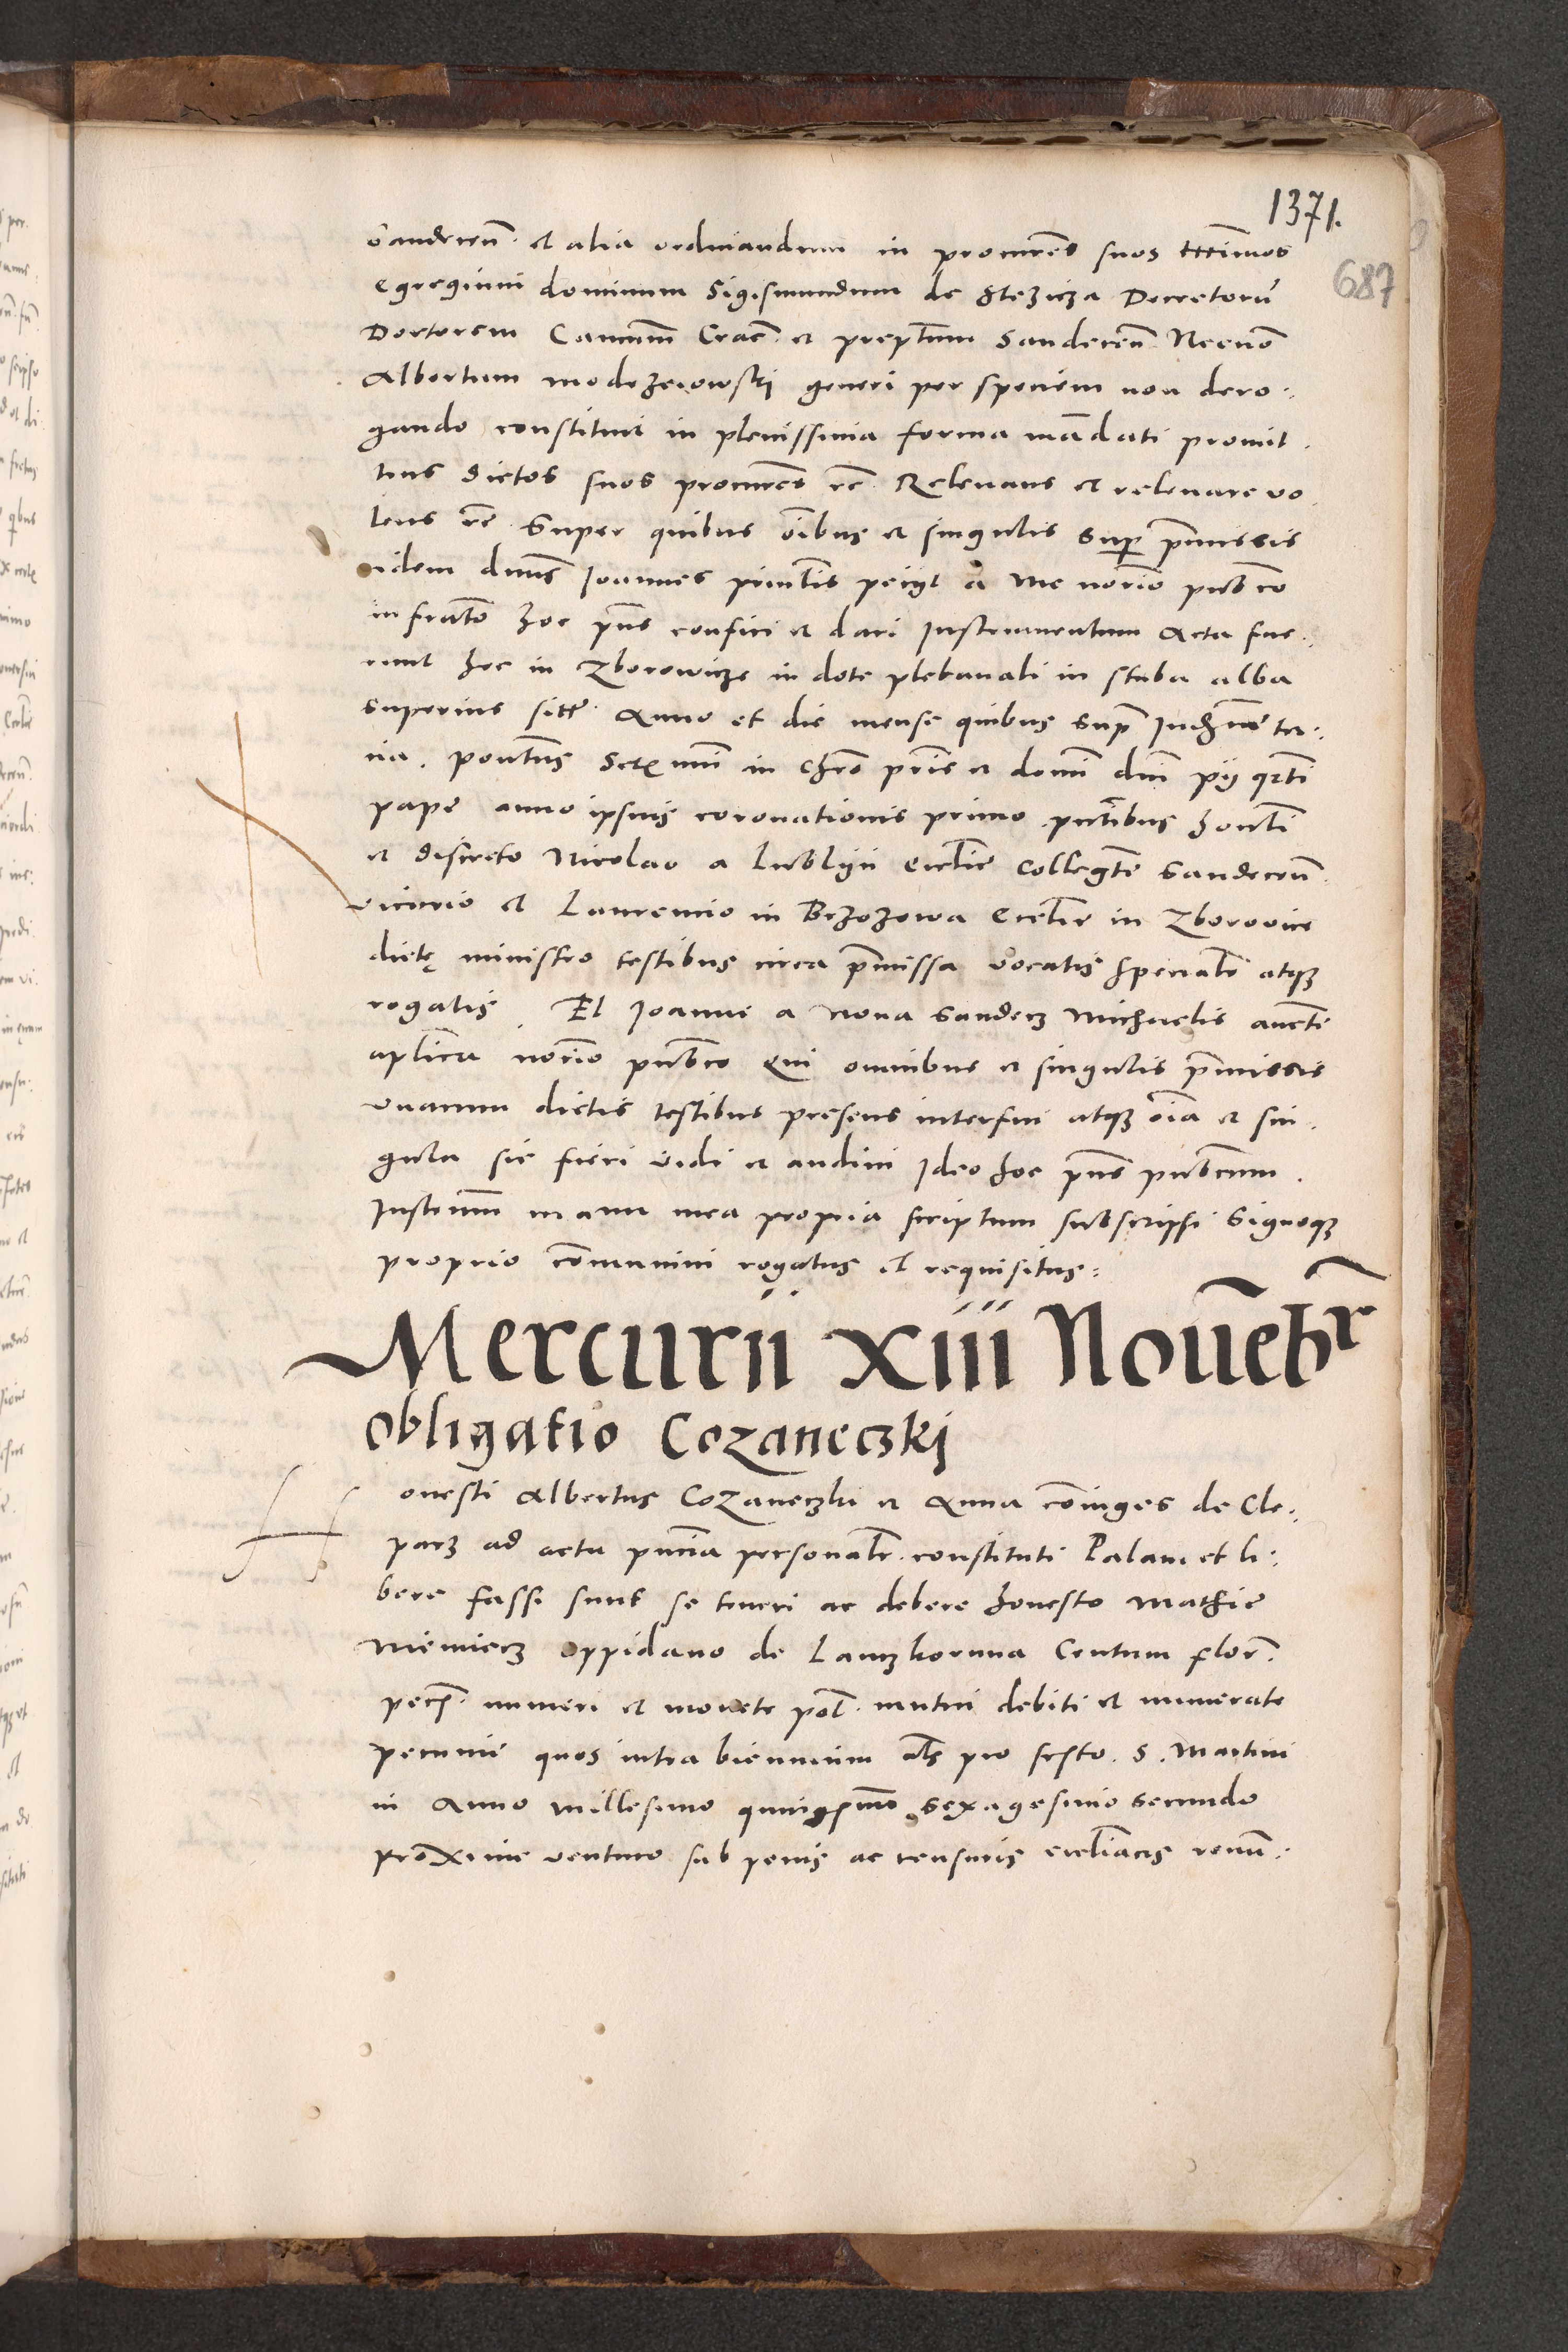 1371.
687
Sandecen̄. et alia ordinandum in procur̄es suos lttimos
egregium dominum Sigismundum de Stezicza Decretorū
Doctorem Canicum̄ Crac̄. et prep̄tum Sandecen̄. Necnō
Albertum modrzeiowski generi per speciem non dero.
gando constituit in plenissima forma mādati promit.
tens dictos suos procur̄es rc̄. Relevans et relevare vo
lens rc̄. Super quibus oībus et singulis sup̱ p̄missis
idem dn̄us Ioannes prin̄lis peiyt a me nōrio pub̄co
infrāto hoc p̄ns confici et dari Instrumentum Acta fue.
runt hec in Zborowicze in dote plebanali in stuba alba
superius sitt̄. Anno et die mense quibus sup̄ Indn̄e ter.
tia. pontūs Sctx̄mi in chr̄o pr̄is et domī dn̄i pij qr̄ti
pape anno ipsius coronationis primo pn̄tibus honesti
et discreto Nicolao a Lublyn eccl̄ie Collegt̄e Sandecen̄.
vicario et Laurencio in Brzozowa Eccl̄ie in Zborovice
dictę ministro testibus circa p̄missa vocatis speciāl̄r atqꝫ
rogatis. Et Ioanne a Nova Sandecz Michaelis aucti
apl̄ica nōrio pub̄co Qui omnibus et singulis p̄missis
unacum dictis testibus presens interfui atqꝫ oīa et sin.
gula sic fieri vidi et audivi Ideo hoc p̄ns pub̄cum.
Instrum̄ manu mea propria scriptum subscripsi Signoqꝫ
proprio cōmunivi rogatus et requisitus:
Mercurii xiii Nouēbr
Obligatio Cozaneczki
Honesti Albertus Cozaneczki et Anna cōiuges de Cle.
parz ad acta pn̄cia personal̄r. constituti Palam et li:
bere fassi sunt se teneri ac debere honesto Mathie
Niemiecz oppidano de Lanczkorunna Centum flor̄.
pecn̄. numeri et monete pol̄. mutui debiti et numerate
pecunie quos intra biennium al̄s pro festo. S. Martini
in Anno millesimo quingēmo sexagesimo secundo
prōxime venturo sub penis ac censuris eccl̄iacis renun̄: